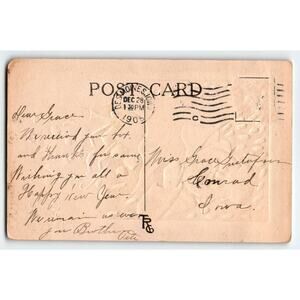 POST CARD
DES MOINES, IOWA
DEC 28
1 30 PM
190
C
Dear Grace
We recieved your let.
and thanks for same
Wishing you all a
Happy New Year.
We remain as ever
your Brother
Miss Grace Gustafson
Conrad
Iowa.